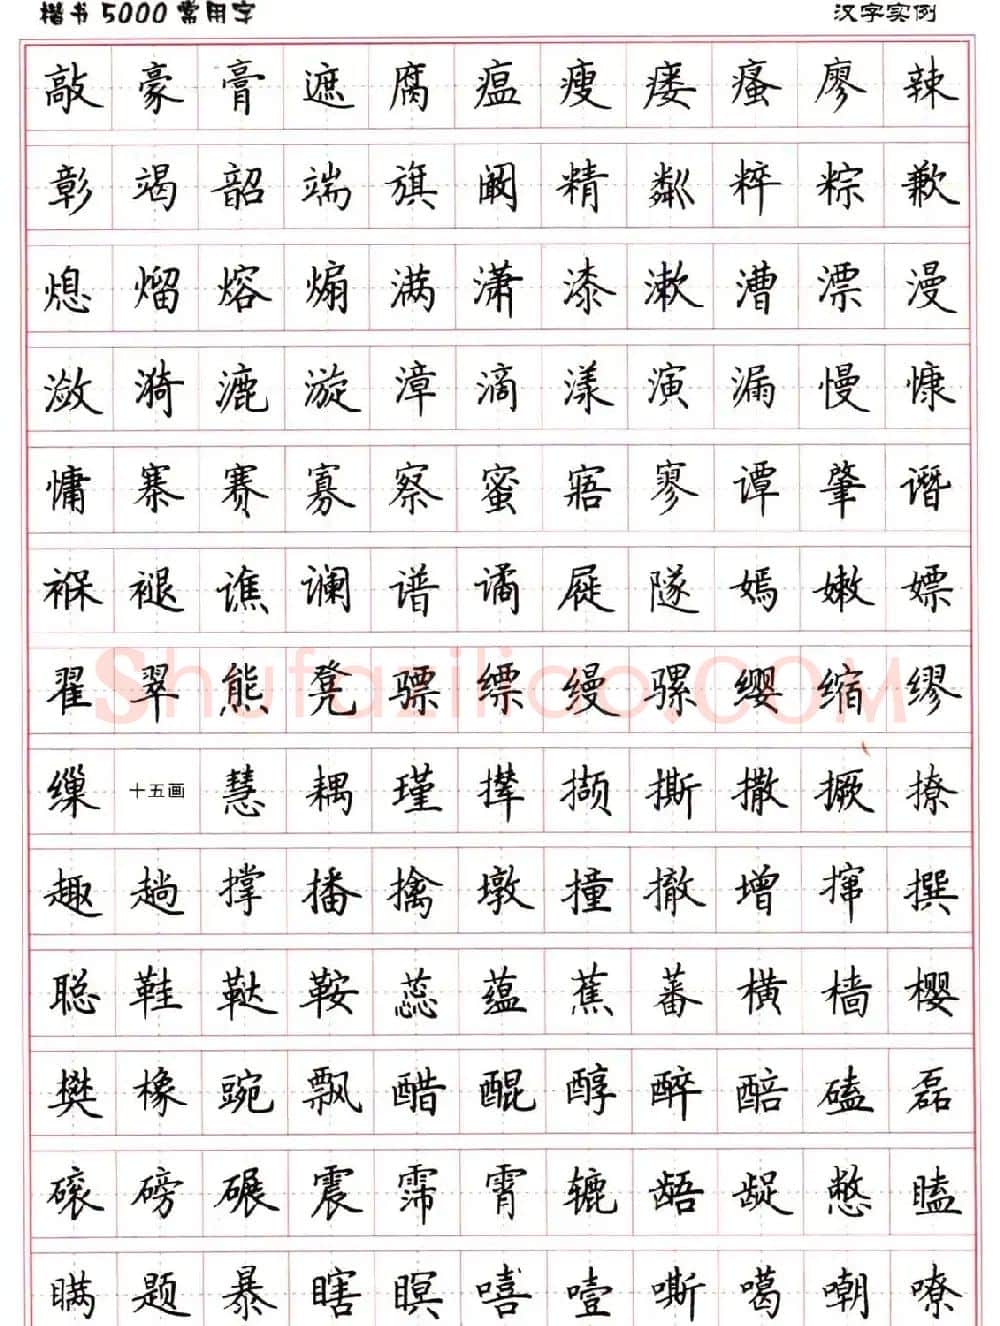 楷书5000常用字 汉字实例
敲豪膏遮腐瘟瘦瘘瘙廖辣
彰竭韶端旗阚精粼粹粽歉
熄熘熔煽满潇漆漱漕漂漫
潋漪漉漩漳滴漾演漏慢慷
慵寨赛寡察蜜寤寥谭肇谮
褓褪谯谰谱谲屣隧嫣嫩嫖
翟翠熊凳骠缥缦骡缨缩缪
缫 十五画 慧耦瑾撵撷撕撒撅撩
趣趟撑播擒墩撞撤增撺撰
聪鞋鞑鞍蕊蕴蕉蕃横樯樱
樊橡豌飘醋醌醇醉醅磕磊
磙磅碾震霈霄辘龉龊憋瞌
瞒题暴瞎暝嘻噎嘶噶嘲嘹
Shufaziliao.COM